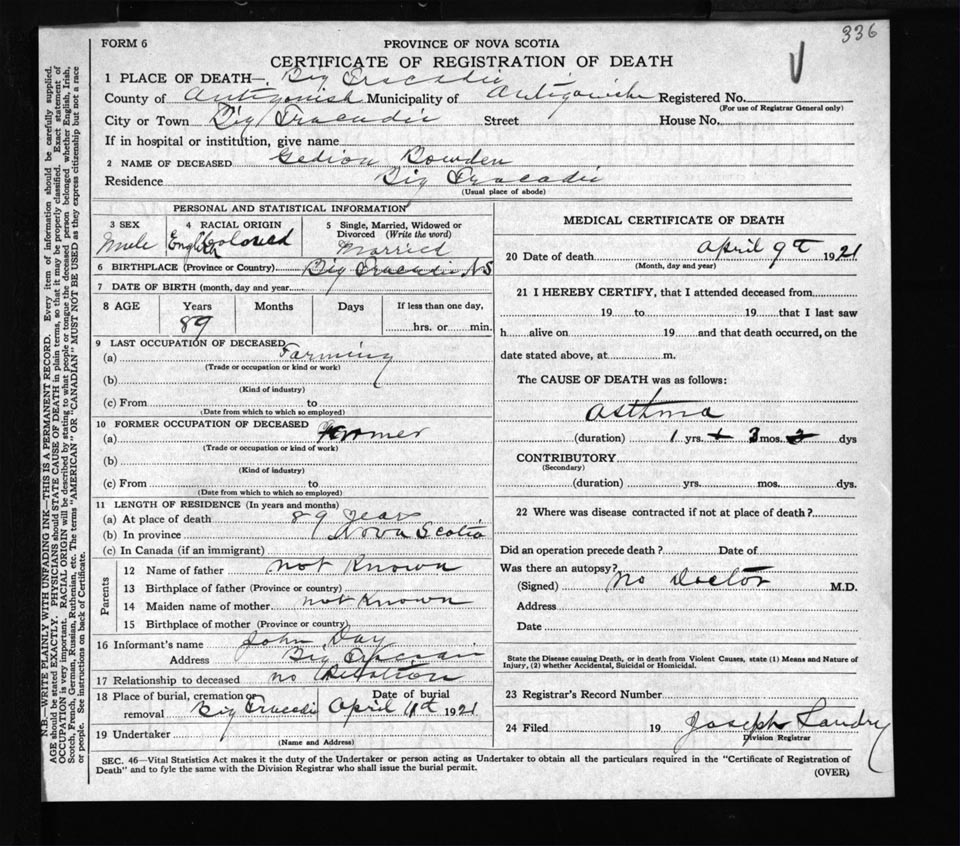 336
FORM 6
PROVINCE OF NOVA SCOTIA
CERTIFICATE OF REGISTRATION OF DEATH
1 PLACE OF DEATH—. Big Tracadie
County of Antigonish Municipality of Antigonish Registered No.
(For use of Registrar General only)
City or Town Big Tracadie Street House No.
If in hospital or institution, give name
2 NAME OF DECEASED Gedion Bowden
Residence Big Tracadie
(Usual place of abode)
PERSONAL AND STATISTICAL INFORMATION
3 SEX 4 RACIAL ORIGIN 5 Single, Married, Widowed or
Divorced (Write the word)
Male English Colored Married
6 BIRTHPLACE (Province or Country) Big Tracadie NS
7 DATE OF BIRTH (month, day and year)
8 AGE Years Months Days If less than one day,
89 hrs. or min.
9 LAST OCCUPATION OF DECEASED
(a) Farming
(Trade or occupation or kind or work)
(b)
(Kind of industry)
(c) From to
(Date from which to which so employed)
10 FORMER OCCUPATION OF DECEASED
(a) Farmer
(Trade or occupation or kind of work)
(b)
(Kind of industry)
(c) From to
(Date from which to which so employed)
11 LENGTH OF RESIDENCE (In years and months)
(a) At place of death 89 years
(b) In province Nova Scotia
(c) In Canada (if an immigrant)
Parents
12 Name of father not Known
13 Birthplace of father (Province or country)
14 Maiden name of mother not Known
15 Birthplace of mother (Province or country)
16 Informant's name John Day
Address Big Tracadie
17 Relationship to deceased no Relation
18 Place of burial, cremation or Date of burial
removal Big Tracadi April 11th 1921
19 Undertaker
(Name and Address)
MEDICAL CERTIFICATE OF DEATH
20 Date of death April 9th 1921
(Month, day and year)
21 I HEREBY CERTIFY, that I attended deceased from
19 to 19 that I last saw
h alive on 19 and that death occurred, on the
date stated above, at m.
The CAUSE OF DEATH was as follows:
Asthma
(duration) 1 yrs. 3 mos. dys
CONTRIBUTORY
(Secondary)
(duration) yrs. mos. dys.
22 Where was disease contracted if not at place of death?
Did an operation precede death? Date of
Was there an autopsy?
(Signed) No Doctor M.D.
Address
Date
State the Disease causing Death, or in death from Violent Causes, state (1) Means and Nature of
Injury, (2) whether Accidental, Suicidal or Homicidal.
23 Registrar's Record Number
24 Filed 19 Joseph Landry
Division Registrar
SEC. 46—Vital Statistics Act makes it the duty of the Undertaker or person acting as Undertaker to obtain all the particulars required in the "Certificate of Registration of
Death" and to fyle the same with the Division Registrar who shall issue the burial permit.
(OVER)
N.B.—WRITE PLAINLY WITH UNFADING INK—THIS IS A PERMANENT RECORD. Every item of information should be carefully supplied.
AGE should be stated EXACTLY. PHYSICIANS should STATE CAUSE OF DEATH in plain terms, so that it may be properly classified. Exact statement of
OCCUPATION is very important. RACIAL ORIGIN will be described by stating to what people or tongue the deceased person belonged whether English, Irish,
Scotch, French, German, Russian, Ruthenian, etc. The terms "AMERICAN" OR "CANADIAN" MUST NOT BE USED as they express citizenship but not a race
or people. See instructions on back of Certificate.